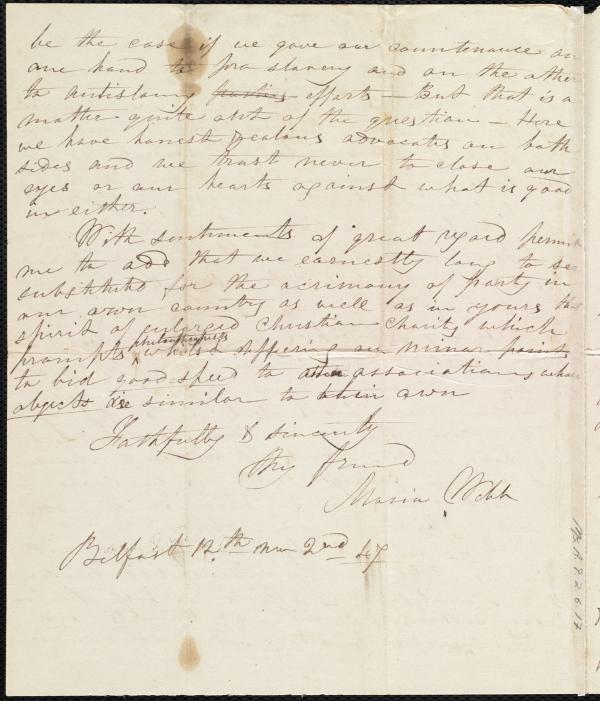 be the case if we gave our countenance on
one hand to proslavery and on the other
to antislavery parties efforts – But that is a
matter quite out of the question – Here
we have honest zealous advocates on both
sides and we trust never to close our
eyes or our hearts against what is good
in either.
With sentiments of great regard permit
me to add that we earnestly long to see
substituted for the acrimony of party in
our own country as well as in yours the
spirit of enlarged Christian Charity which
prompts philanthropists whilst differing on minor points
to bid good-speed to associations whose
objects are similar to their own
Faithfully & sincerely
thy friend
Maria Webb
Belfast 12th mo 2nd 47